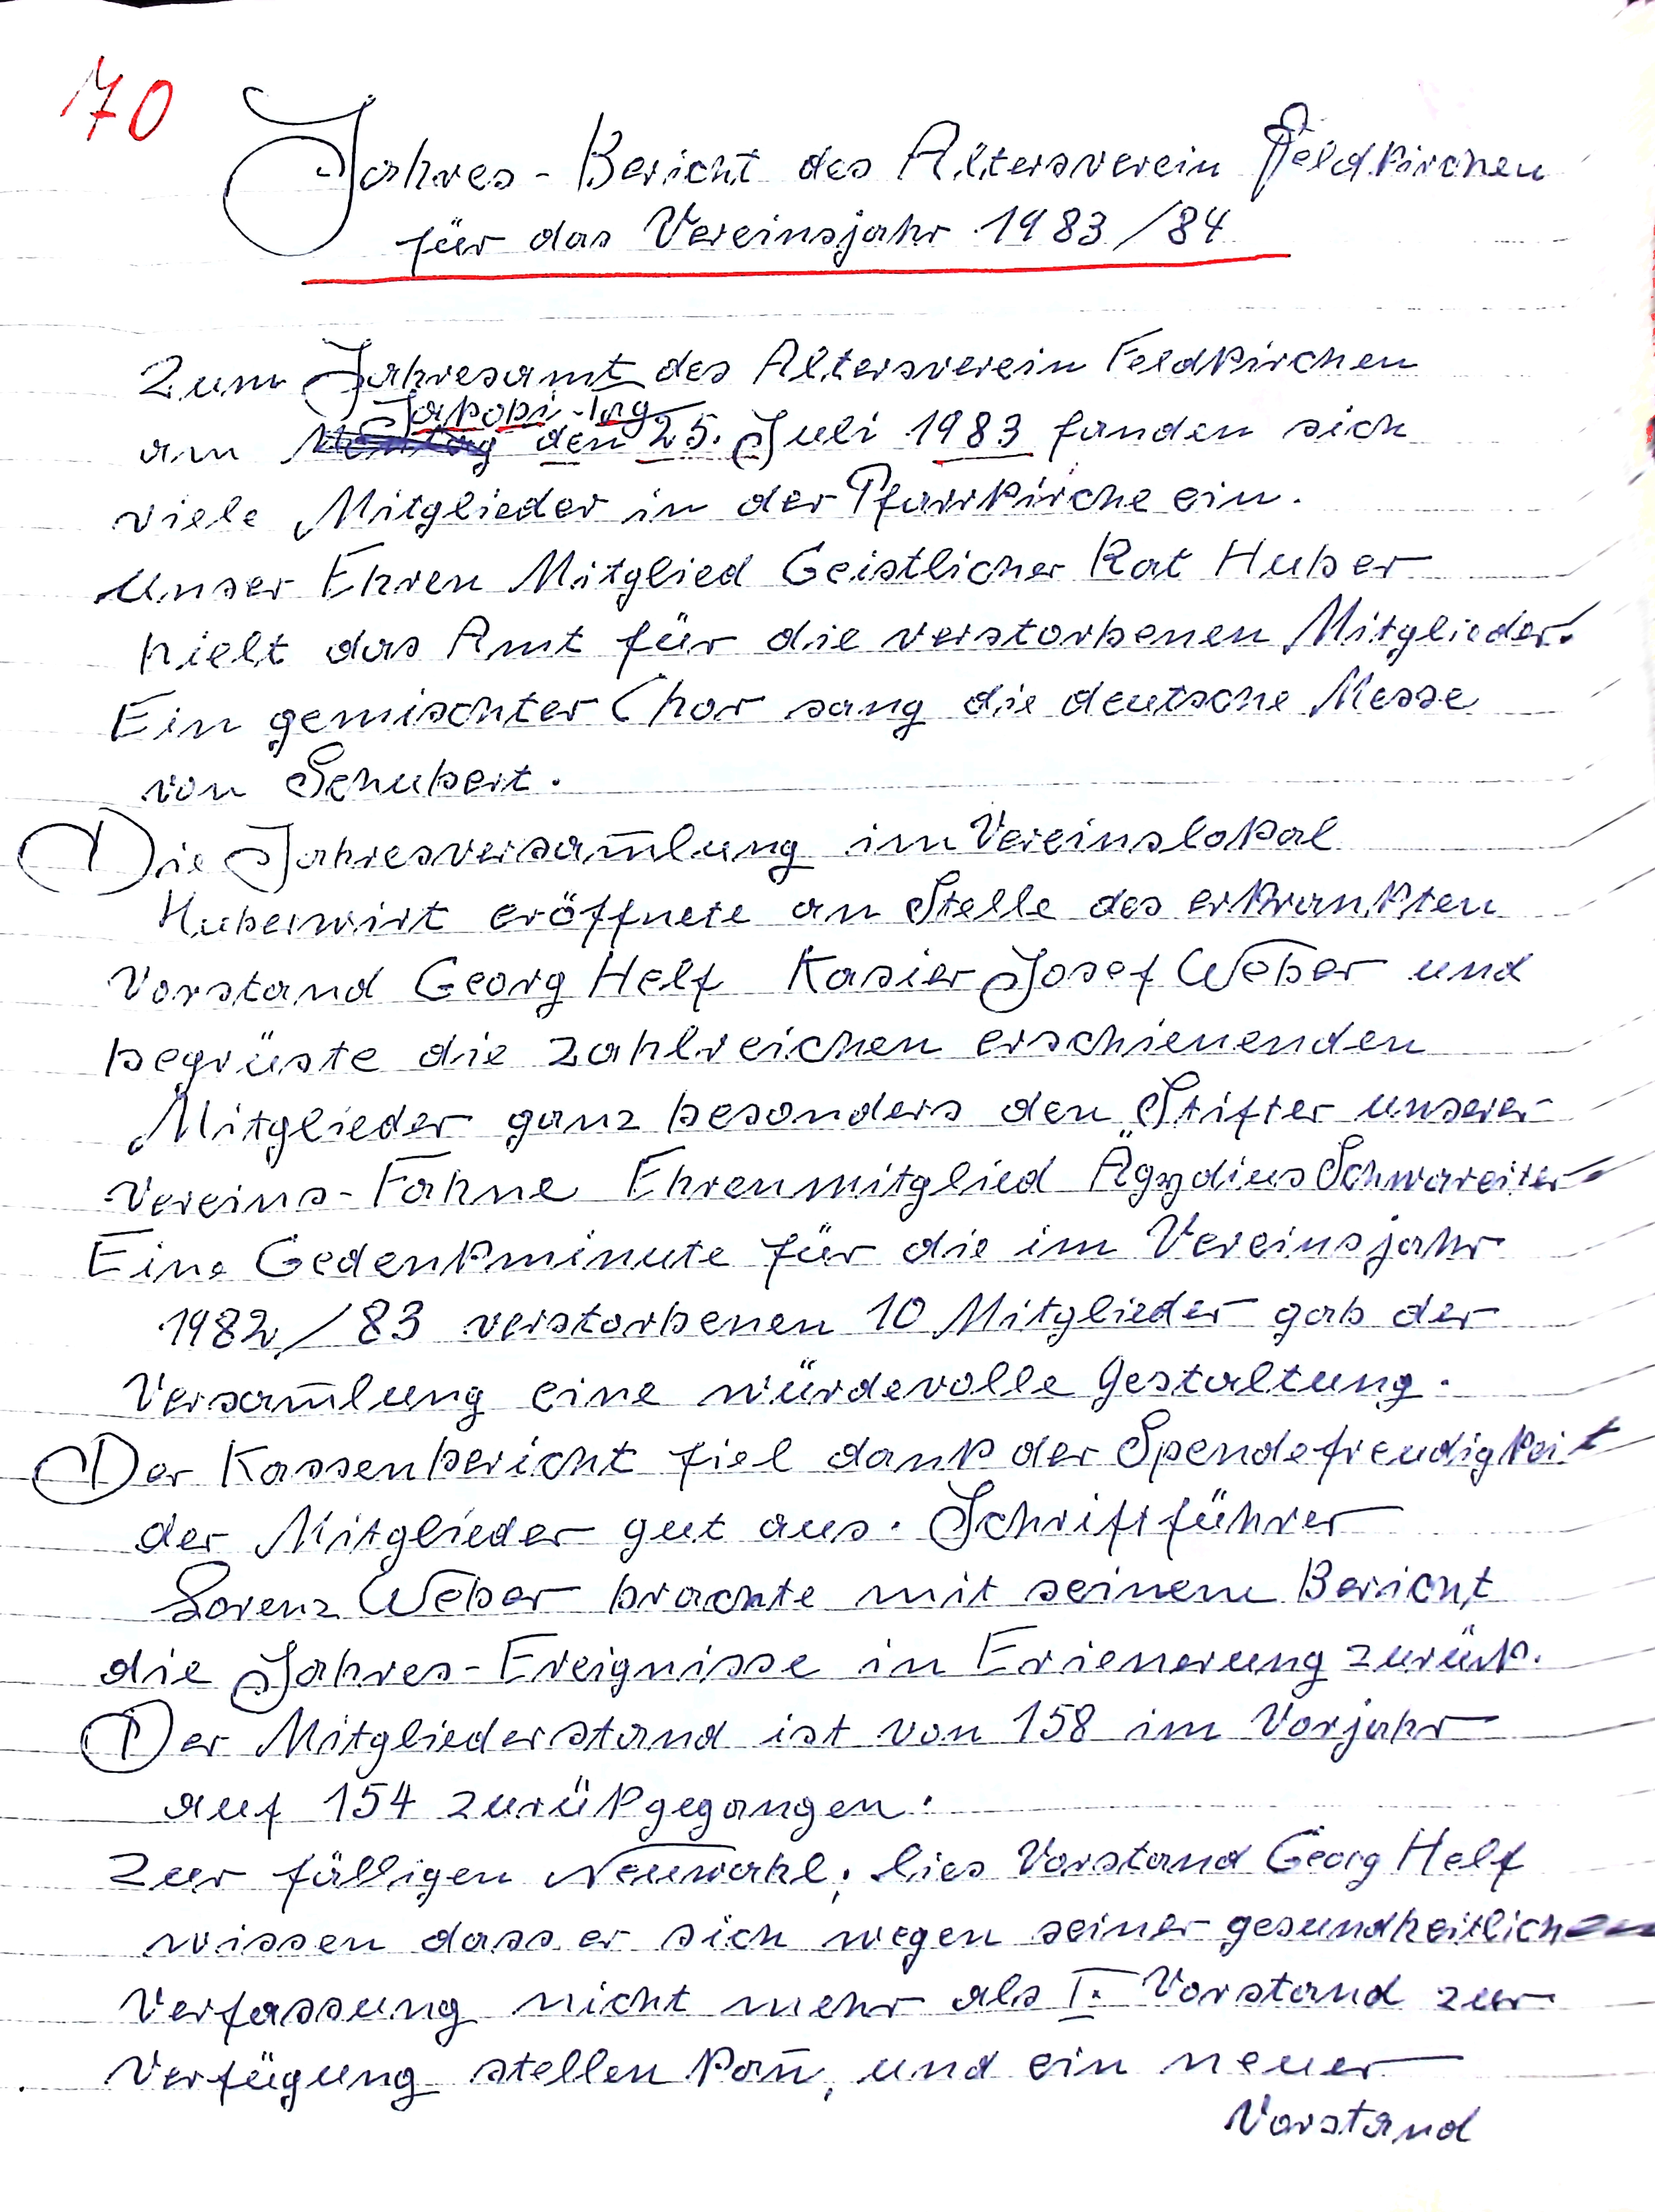 70
Jahres-Bericht des Altersverein Feldkirchen
für das Vereinsjahr 1983/84
Zum Jahresamt des Altersverein Feldkirchen
Jakobi-Tag
am Montag den 25. Juli 1983 fanden sich
viele Mitglieder in der Pfarrkirche ein.
Unser Ehren Mitglied Geistlicher Rat Huber
hielt das Amt für die verstorbenen Mitglieder.
Ein gemischter Chor sang die deutsche Messe
von Schubert.
Die Jahresversam̄lung im Vereinslokal
Huberwirt eröffnete an Stelle des erkrankten
Vorstand Georg Helf Kasier Josef Weber und
begrüste die zahlreichen erschienenden
Mitglieder ganz besonders den Stifter unserer
Vereins-Fahne Ehrenmitglied Ägydius Schwareiter
Eine Gedenkminute für die im Vereinsjahr
1982/83 verstorbenen 10 Mitglieder gab der
Versam̄lung eine würdevolle Gestaltung.
Der Kassenbericht fiel dank der Spendefreudigkeit
der Mitglieder gut aus. Schriftführer
Lorenz Weber brachte mit seinem Bericht
die Jahres-Ereignisse in Erienerung zurük.
Der Mitgliederstand ist von 158 im Vorjahr
auf 154 zurükgegangen.
Zur fälligen Neuwahl, lies Vorstand Georg Helf
wissen dass er sich wegen seiner gesundheitlichen
Verfassung nicht mehr als I. Vorstand zur
Verfügung stellen kan̄, und ein neuer
Vorstand